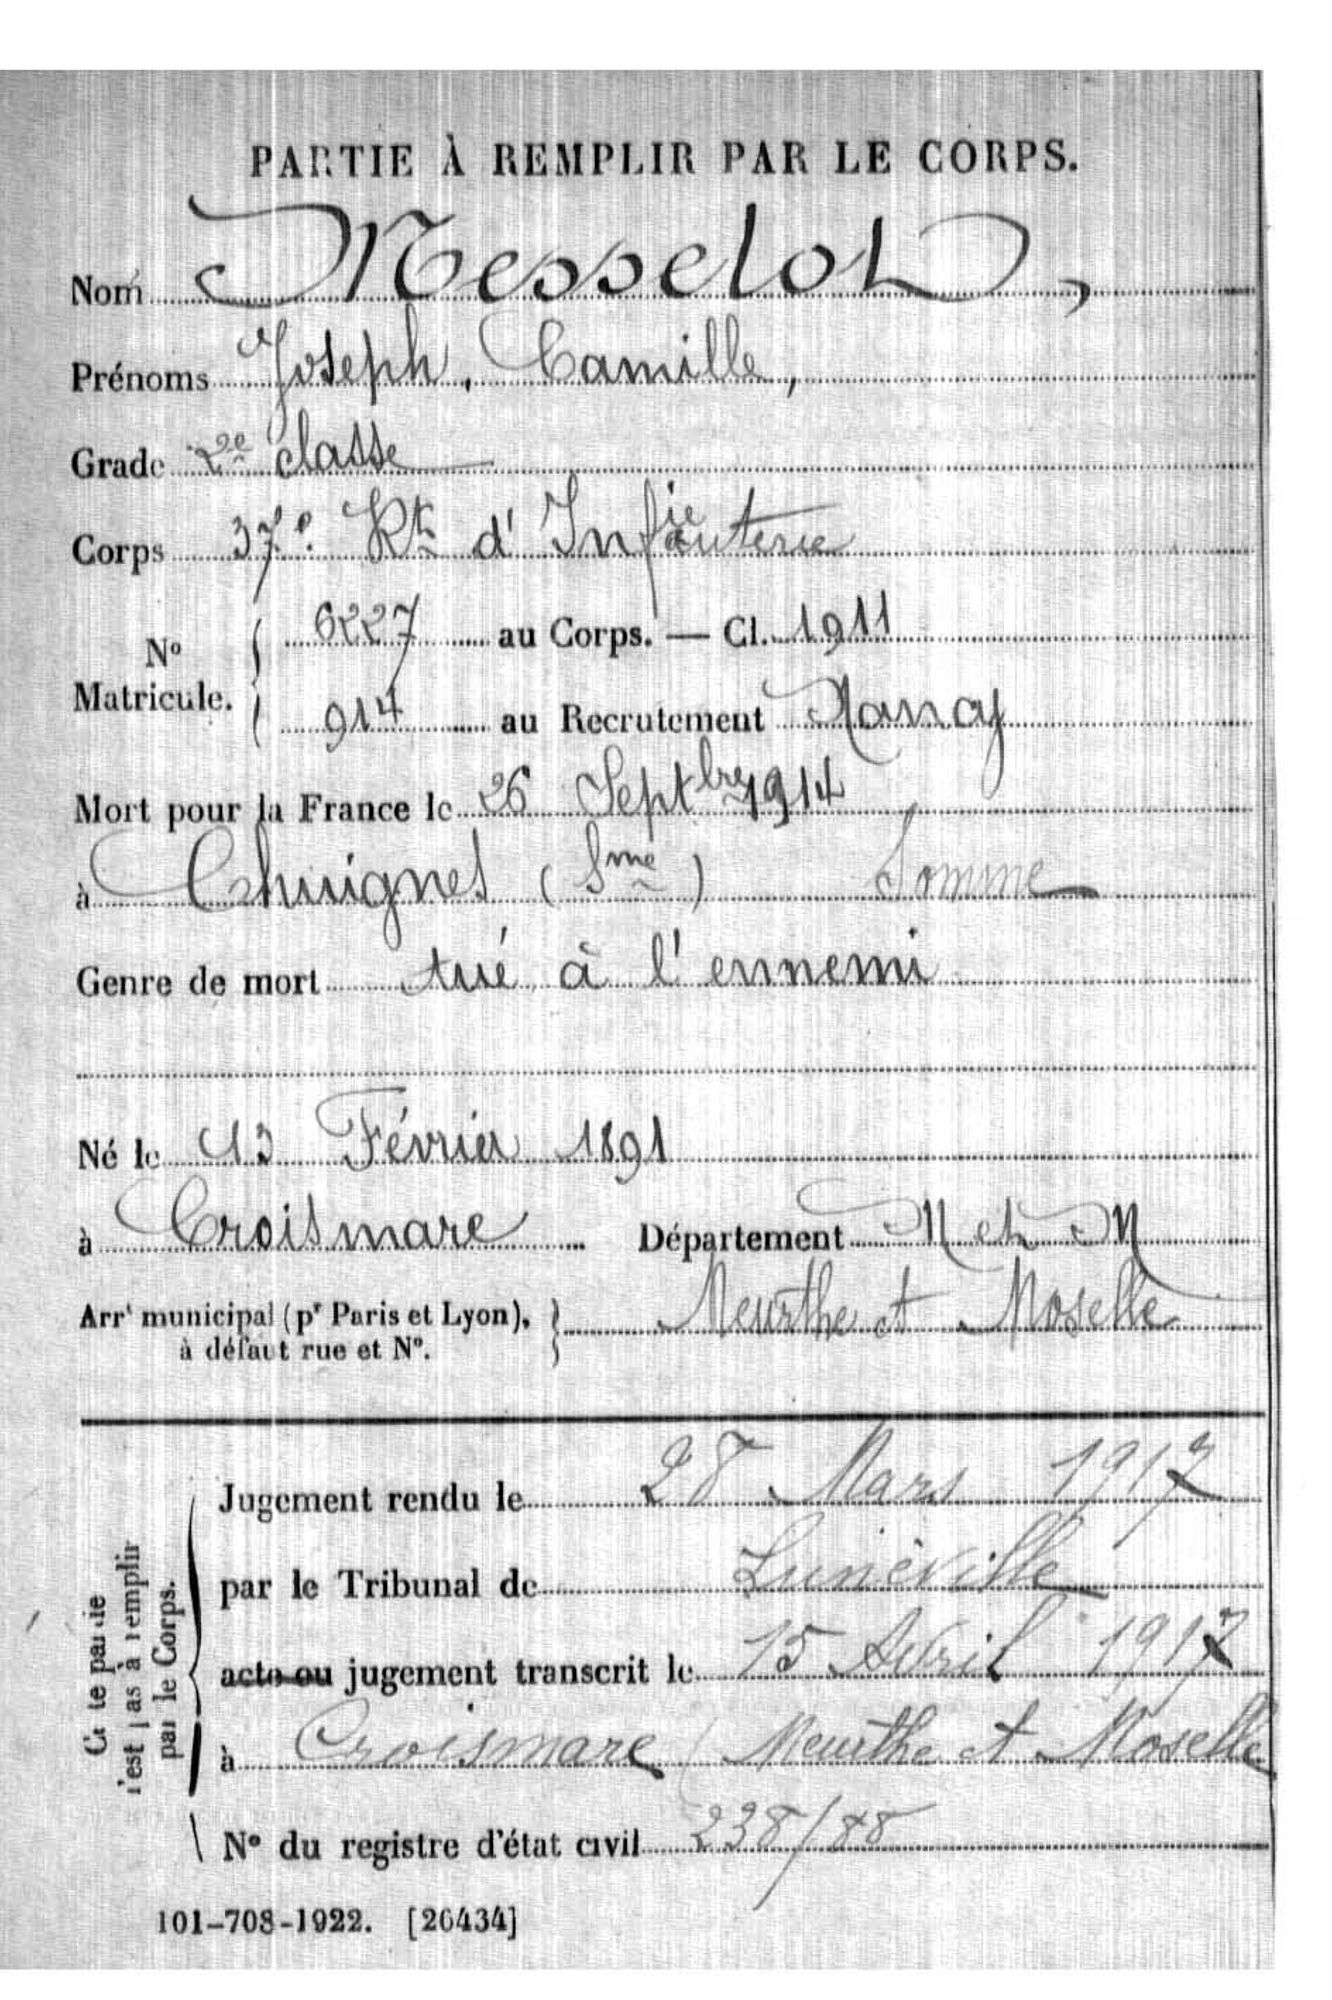 PARTIE À REMPLIR PAR LE CORPS.
Nom Messelot,
Prénoms Joseph, Camille,
Grade 2e classe
Corps 37e Rt d'Infanterie ie
No Matricule. 6227 au Corps. — Cl. 1911
914 au Recrutement Nancy
Mort pour la France le 26 Septbre 1914
à Chuignes (Sme) Somme
Genre de mort tué à l'ennemi
Né le 13 Février 1891
à Croismare Département M et M
Arrt municipal (pr Paris et Lyon), à défaut rue et No. Meurthe et Moselle
Cette partie n'est pas à remplir par le Corps.
Jugement rendu le 28 Mars 1917
par le Tribunal de Lunéville
acte ou jugement transcrit le 15 Avril 1917
à Croismare (Meurthe et Moselle
No du registre d'état civil 238/88
101-708-1922. [26434]